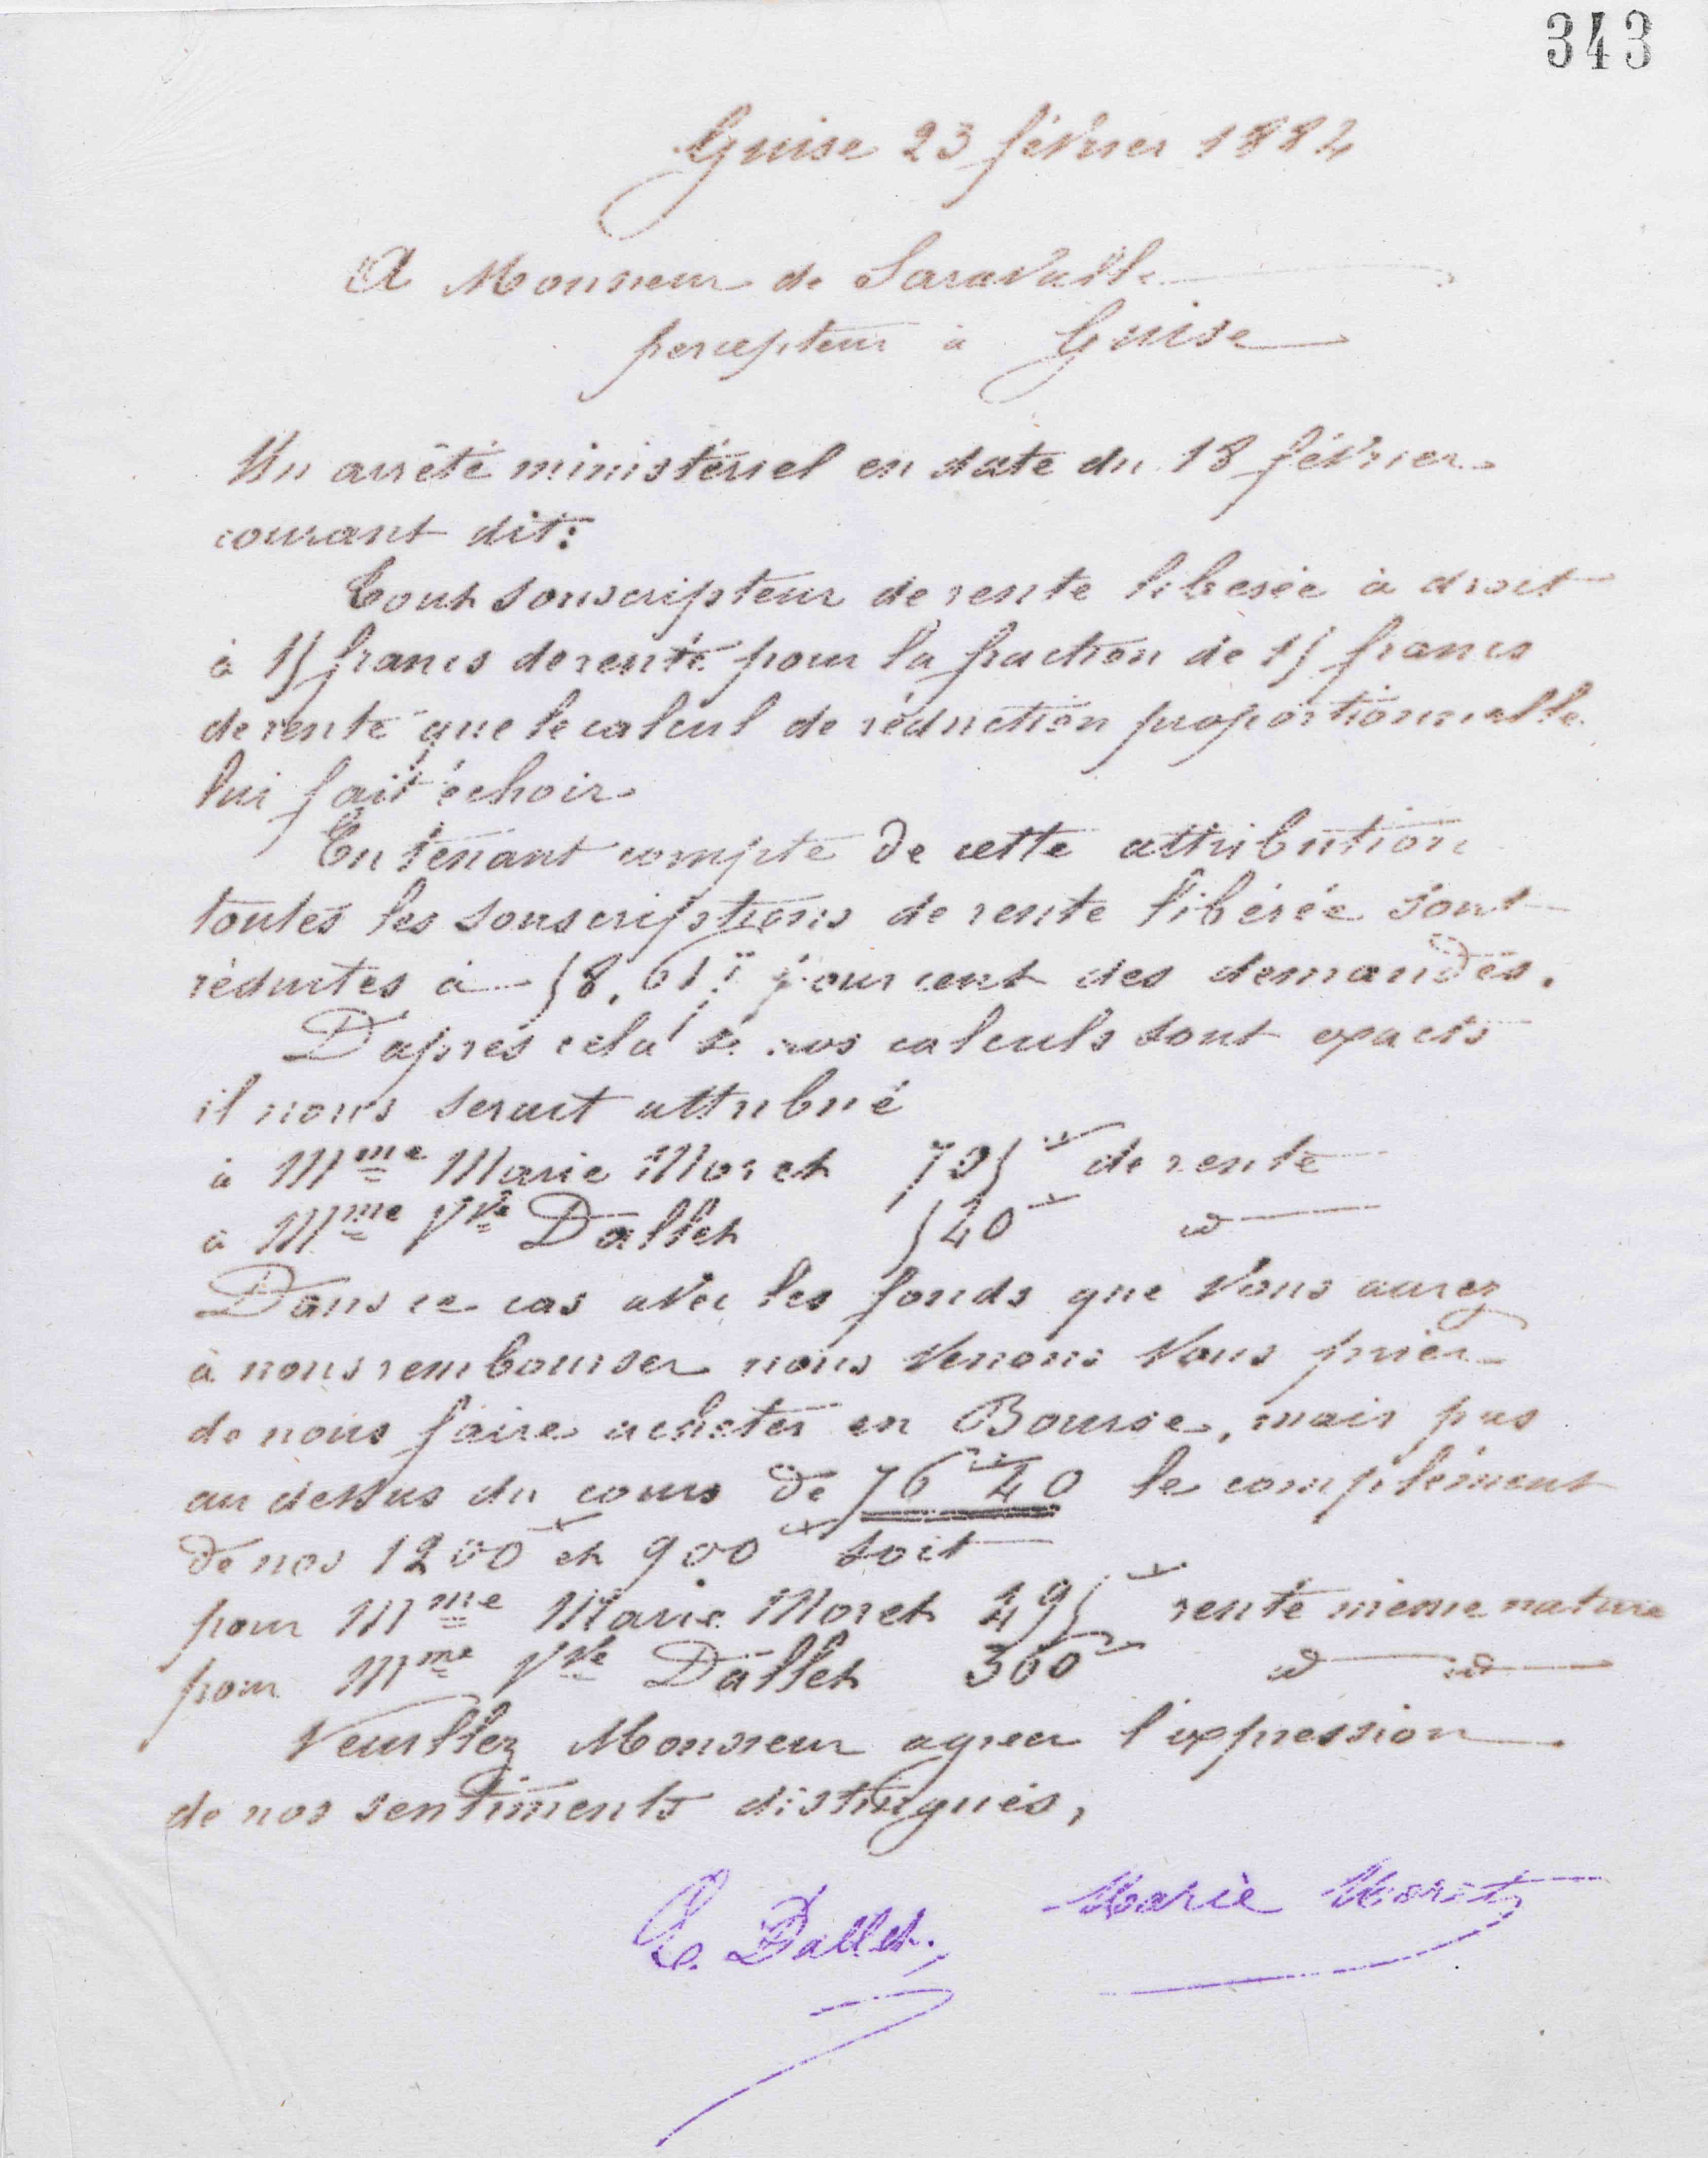 343
Guise 23 février 1884
A Monsieur de
percepteur à Guise
Un arrêté ministériel en date du 18 février
courant dit:
Tout souscripteur de rente liberée à droit
à 15 francs de rente pour la fraction de 15 francs
de rente que le calcul de réduction proportionnelle
lui fait échoir.
En tenant compte de cette attribution
toutes les souscriptions de rente libérée sont
réduites à pour cent des demandes.
D'après cela si nos calculs sont exacts
il nous serait attribué
à Mme Marie Moret 705 f de rente
à Mme Vve Dallet 540 f d°
Dans ce cas avec les fonds que vous aurez
à nous rembourser nous venons vous prier
de nous faire acheter en Bourse, mais pas
au dessus du cours de 76 f 40 le complément
de nos 1200 f et 900 f soit
pour Mme Marie Moret 495 f rente même nature
pour Mme Vve Dallet 360 f d° d°
Veuillez Monsieur agréer l'expression
de nos sentiments distingués,
E. Dallet. Marie Moret